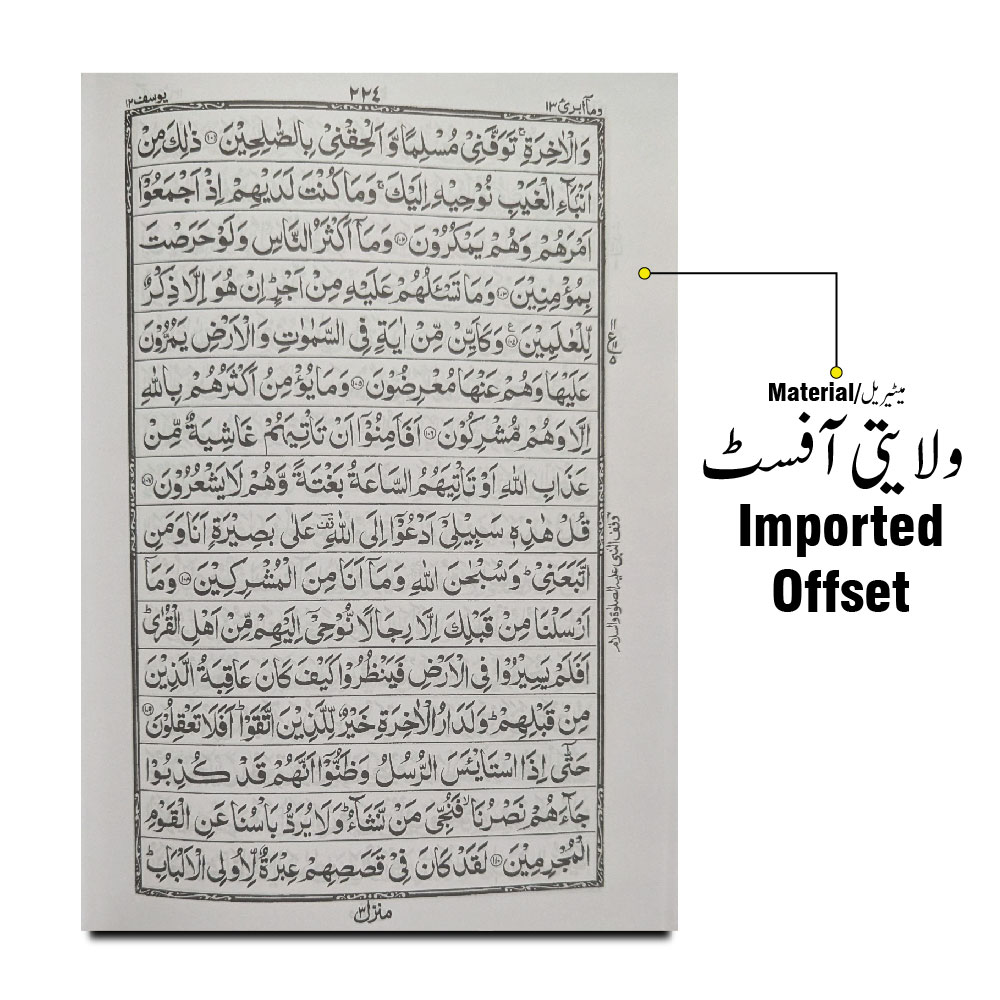 وما ابرئ ١٣
٢٢٤
يوسف ١٢
وَالْاٰخِرَةِ ۚ تَوَفَّنِىْ مُسْلِمًا وَّ اَلْحِقْنِىْ بِالصّٰلِحِيْنَ ﴿١٠١﴾ ذٰلِكَ مِنْ
اَنْۢبَآءِ الْغَيْبِ نُوْحِيْهِ اِلَيْكَ ۚ وَمَا كُنْتَ لَدَيْهِمْ اِذْ اَجْمَعُوْۤا
اَمْرَهُمْ وَهُمْ يَمْكُرُوْنَ ﴿١٠٢﴾ وَمَاۤ اَكْثَرُ النَّاسِ وَلَوْ حَرَصْتَ
بِمُؤْمِنِيْنَ ﴿١٠٣﴾ وَمَا تَسْـَٔلُهُمْ عَلَيْهِ مِنْ اَجْرٍ ؕ اِنْ هُوَ اِلَّا ذِكْرٌ
لِّلْعٰلَمِيْنَ ﴿١٠٤﴾ وَكَاَيِّنْ مِّنْ اٰيَةٍ فِى السَّمٰوٰتِ وَالْاَرْضِ يَمُرُّوْنَ
عَلَيْهَا وَهُمْ عَنْهَا مُعْرِضُوْنَ ﴿١٠٥﴾ وَمَا يُؤْمِنُ اَكْثَرُهُمْ بِاللّٰهِ
اِلَّا وَهُمْ مُّشْرِكُوْنَ ﴿١٠٦﴾ اَفَاَمِنُوْۤا اَنْ تَاْتِيَهُمْ غَاشِيَةٌ مِّنْ
عَذَابِ اللّٰهِ اَوْ تَاْتِيَهُمُ السَّاعَةُ بَغْتَةً وَّهُمْ لَا يَشْعُرُوْنَ ﴿١٠٧﴾
قُلْ هٰذِهٖ سَبِيْلِىْۤ اَدْعُوْۤا اِلَى اللّٰهِ ۟قف عَلٰى بَصِيْرَةٍ اَنَا وَمَنِ
اتَّبَعَنِىْ ؕ وَسُبْحٰنَ اللّٰهِ وَمَاۤ اَنَا مِنَ الْمُشْرِكِيْنَ ﴿١٠٨﴾ وَمَاۤ
اَرْسَلْنَا مِنْ قَبْلِكَ اِلَّا رِجَالًا نُّوْحِىْۤ اِلَيْهِمْ مِّنْ اَهْلِ الْقُرٰى ؕ
اَفَلَمْ يَسِيْرُوْا فِى الْاَرْضِ فَيَنْظُرُوْا كَيْفَ كَانَ عَاقِبَةُ الَّذِيْنَ
مِنْ قَبْلِهِمْ ؕ وَلَدَارُ الْاٰخِرَةِ خَيْرٌ لِّلَّذِيْنَ اتَّقَوْا ؕ اَفَلَا تَعْقِلُوْنَ ﴿١٠٩﴾
حَتّٰۤى اِذَا اسْتَايْـَٔسَ الرُّسُلُ وَظَنُّوْۤا اَنَّهُمْ قَدْ كُذِبُوْا
جَآءَهُمْ نَصْرُنَا ۙ فَنُجِّىَ مَنْ نَّشَآءُ ؕ وَلَا يُرَدُّ بَاْسُنَا عَنِ الْقَوْمِ
الْمُجْرِمِيْنَ ﴿١١٠﴾ لَقَدْ كَانَ فِىْ قَصَصِهِمْ عِبْرَةٌ لِّاُولِى الْاَلْبَابِ ؕ
وقف النبي عليه الصلوة والسلام
منزل ٣
Material/میٹیریل
ولایتی آفسٹ
Imported
Offset